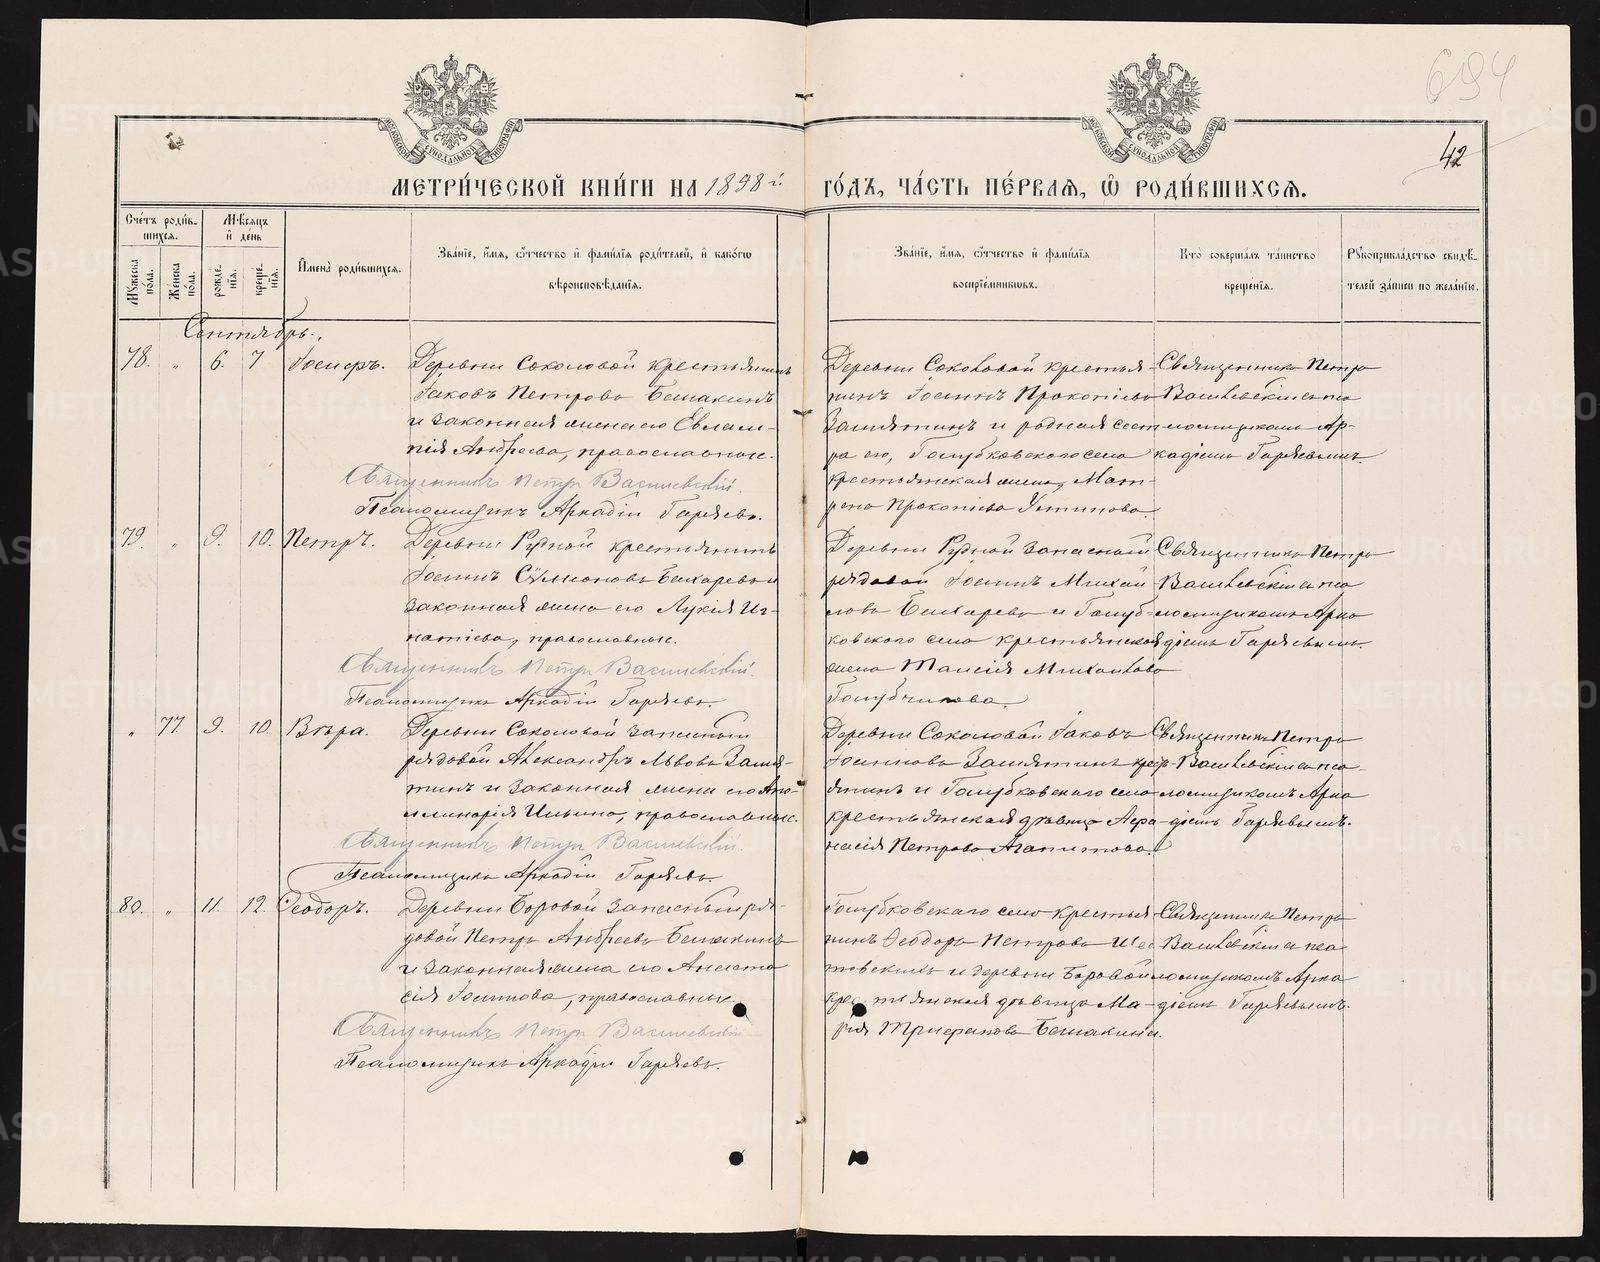 694
42
МЕТРИ́ЧЕСКОЙ КНИ́ГИ НА 1898 й ГО́ДЪ, ЧА́СТЬ ПЕ́РВАЯ, Ѿ РОДИ́ВШИХСЯ.
Сче́тъ роди́вшихся.
Мѣ́сяцъ и́ де́нь
Мужеска по́ла.
Же́нска по́ла.
рожде́нїя.
креще́нїя.
И҆мена̀ роди́вшихся.
Зва́нїе, и́мя, ѻ҆́тчество и҆ фами́лїя роди́телей, и҆ како́гѡ вѣроисповѣ́данїя.
Зва́нїе, и́мя, ѻ҆́тчество и҆ фами́лїя воспрїе́мниковъ.
Кто̀ соверша́лъ та́инство креще́нїя.
Рукоприкла́дство свидѣ́телей за́писи по жела́нїю.
Сентябрь.
78. „ 6. 7 Іосифъ.
Деревни Соколовой крестьянинъ
Іаковъ Петровъ Бешакинъ
и законная жена его Евлам-
пія Андреева, православные.
Священникъ Петръ Василевскій.
Псаломщикъ Аркадій Гаряевъ.
Деревни Соколовой крестья-
нинъ Іоаннъ Прокопіевъ
Замятинъ и родная сест-
ра его, Голубковскаго села
крестьянская жена, Мат-
рена Прокопіева Устинова.
Священникъ Петръ
Василевскій съ пса-
ломщикомъ Ар-
кадіемъ Гаряевымъ.
79. „ 9. 10. Петръ.
Деревни Рудной крестьянинъ
Іоаннъ Сѵмеоновъ Бехаревъ и
законная жена его Лукія Иг-
натіева, православные.
Священникъ Петръ Василевскій.
Псаломщикъ Аркадій Гаряевъ.
Деревни Рудной запасной
рядовой Іоаннъ Михаи-
ловъ Бехаревъ и Голуб-
ковскаго села крестьянская
жена Таисія Михаилова
Голубчикова.
Священникъ Петръ
Василевскій съ пса-
ломщикомъ Арка-
діемъ Гаряевымъ.
„ 77 9. 10. Вѣра.
Деревни Соколовой запасный
рядовой Александръ Львовъ Замя-
тинъ и законная жена его Апо-
ллинарія Ильина, православные.
Священникъ Петръ Василевскій.
Псаломщикъ Аркадій Гаряевъ.
Деревни Соколовой Іаковъ
Іоанновъ Замятинъ
и Голубковскаго села
крестьянская дѣвица Афа-
насія Петрова Агапитова.
Священникъ Петръ
Василевскій съ пса-
ломщикомъ Арка-
діемъ Гаряевымъ.
80. „ 11. 12. Ѳеодоръ.
Деревни Боровой запасный ря-
довой Петръ Андреевъ Бешакинъ
и законная жена его Анаста-
сія Іоаннова, православные.
Священникъ Петръ Василевскій
Псаломщикъ Аркадій Гаряевъ.
Голубковскаго села крестья-
нинъ Ѳеодоръ Петровъ
и деревни Боровой
крестьянская дѣвица Ма-
рія Трифанова Бешакина.
Священникъ Петръ
Василевскій съ пса-
ломщикомъ Арка-
діемъ Гаряевымъ.
METRIKI.GASO-URAL.RU